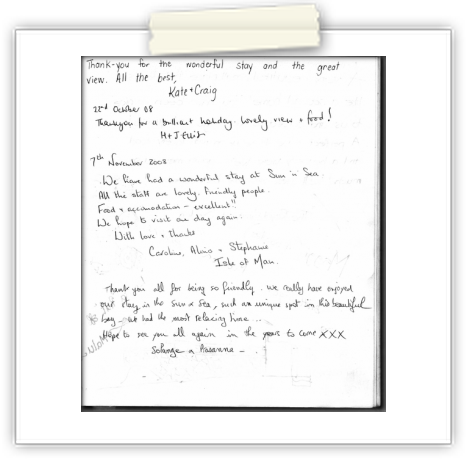 Thank-you for the wonderful stay and the great
view. All the best,
Kate + Craig
22nd October 08
Thankyou for a brilliant holiday. Lovely view + food!
H + J Ellis
7th November 2008
We have had a wonderful stay at Sun in Sea.
All the staff are lovely. Friendly people.
Food + accomodation - excellent"
We hope to visit one day again.
With love + thanks
Caroline, + Stephanie
Isle of Man.
Thank you all for being so friendly. we really have enjoyed
our stay in the Sun n Sea, such an unique spot in this beautiful
bay. we had the most relaxing time...
Hope to see you all again in the years to come XXX
Solange n